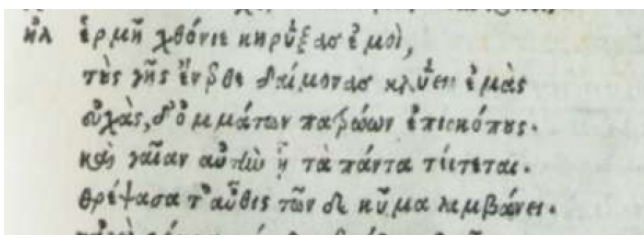 ηλ ἑρμῆ χθόνιε κηρύξασ ἐμοὶ,
τοὺς γῆς ἔνερθε δαίμονασ κλύειν ἐμὰς
εὐχὰς, δ' ὀμμάτων πατρώων ἐπισκόπους.
καὶ γαῖαν αὐτὴν ἣ τὰ πάντα τίκτεται.
θρέψασα τ' αὖθις τῶν δε κῦμα λαμβάνει.